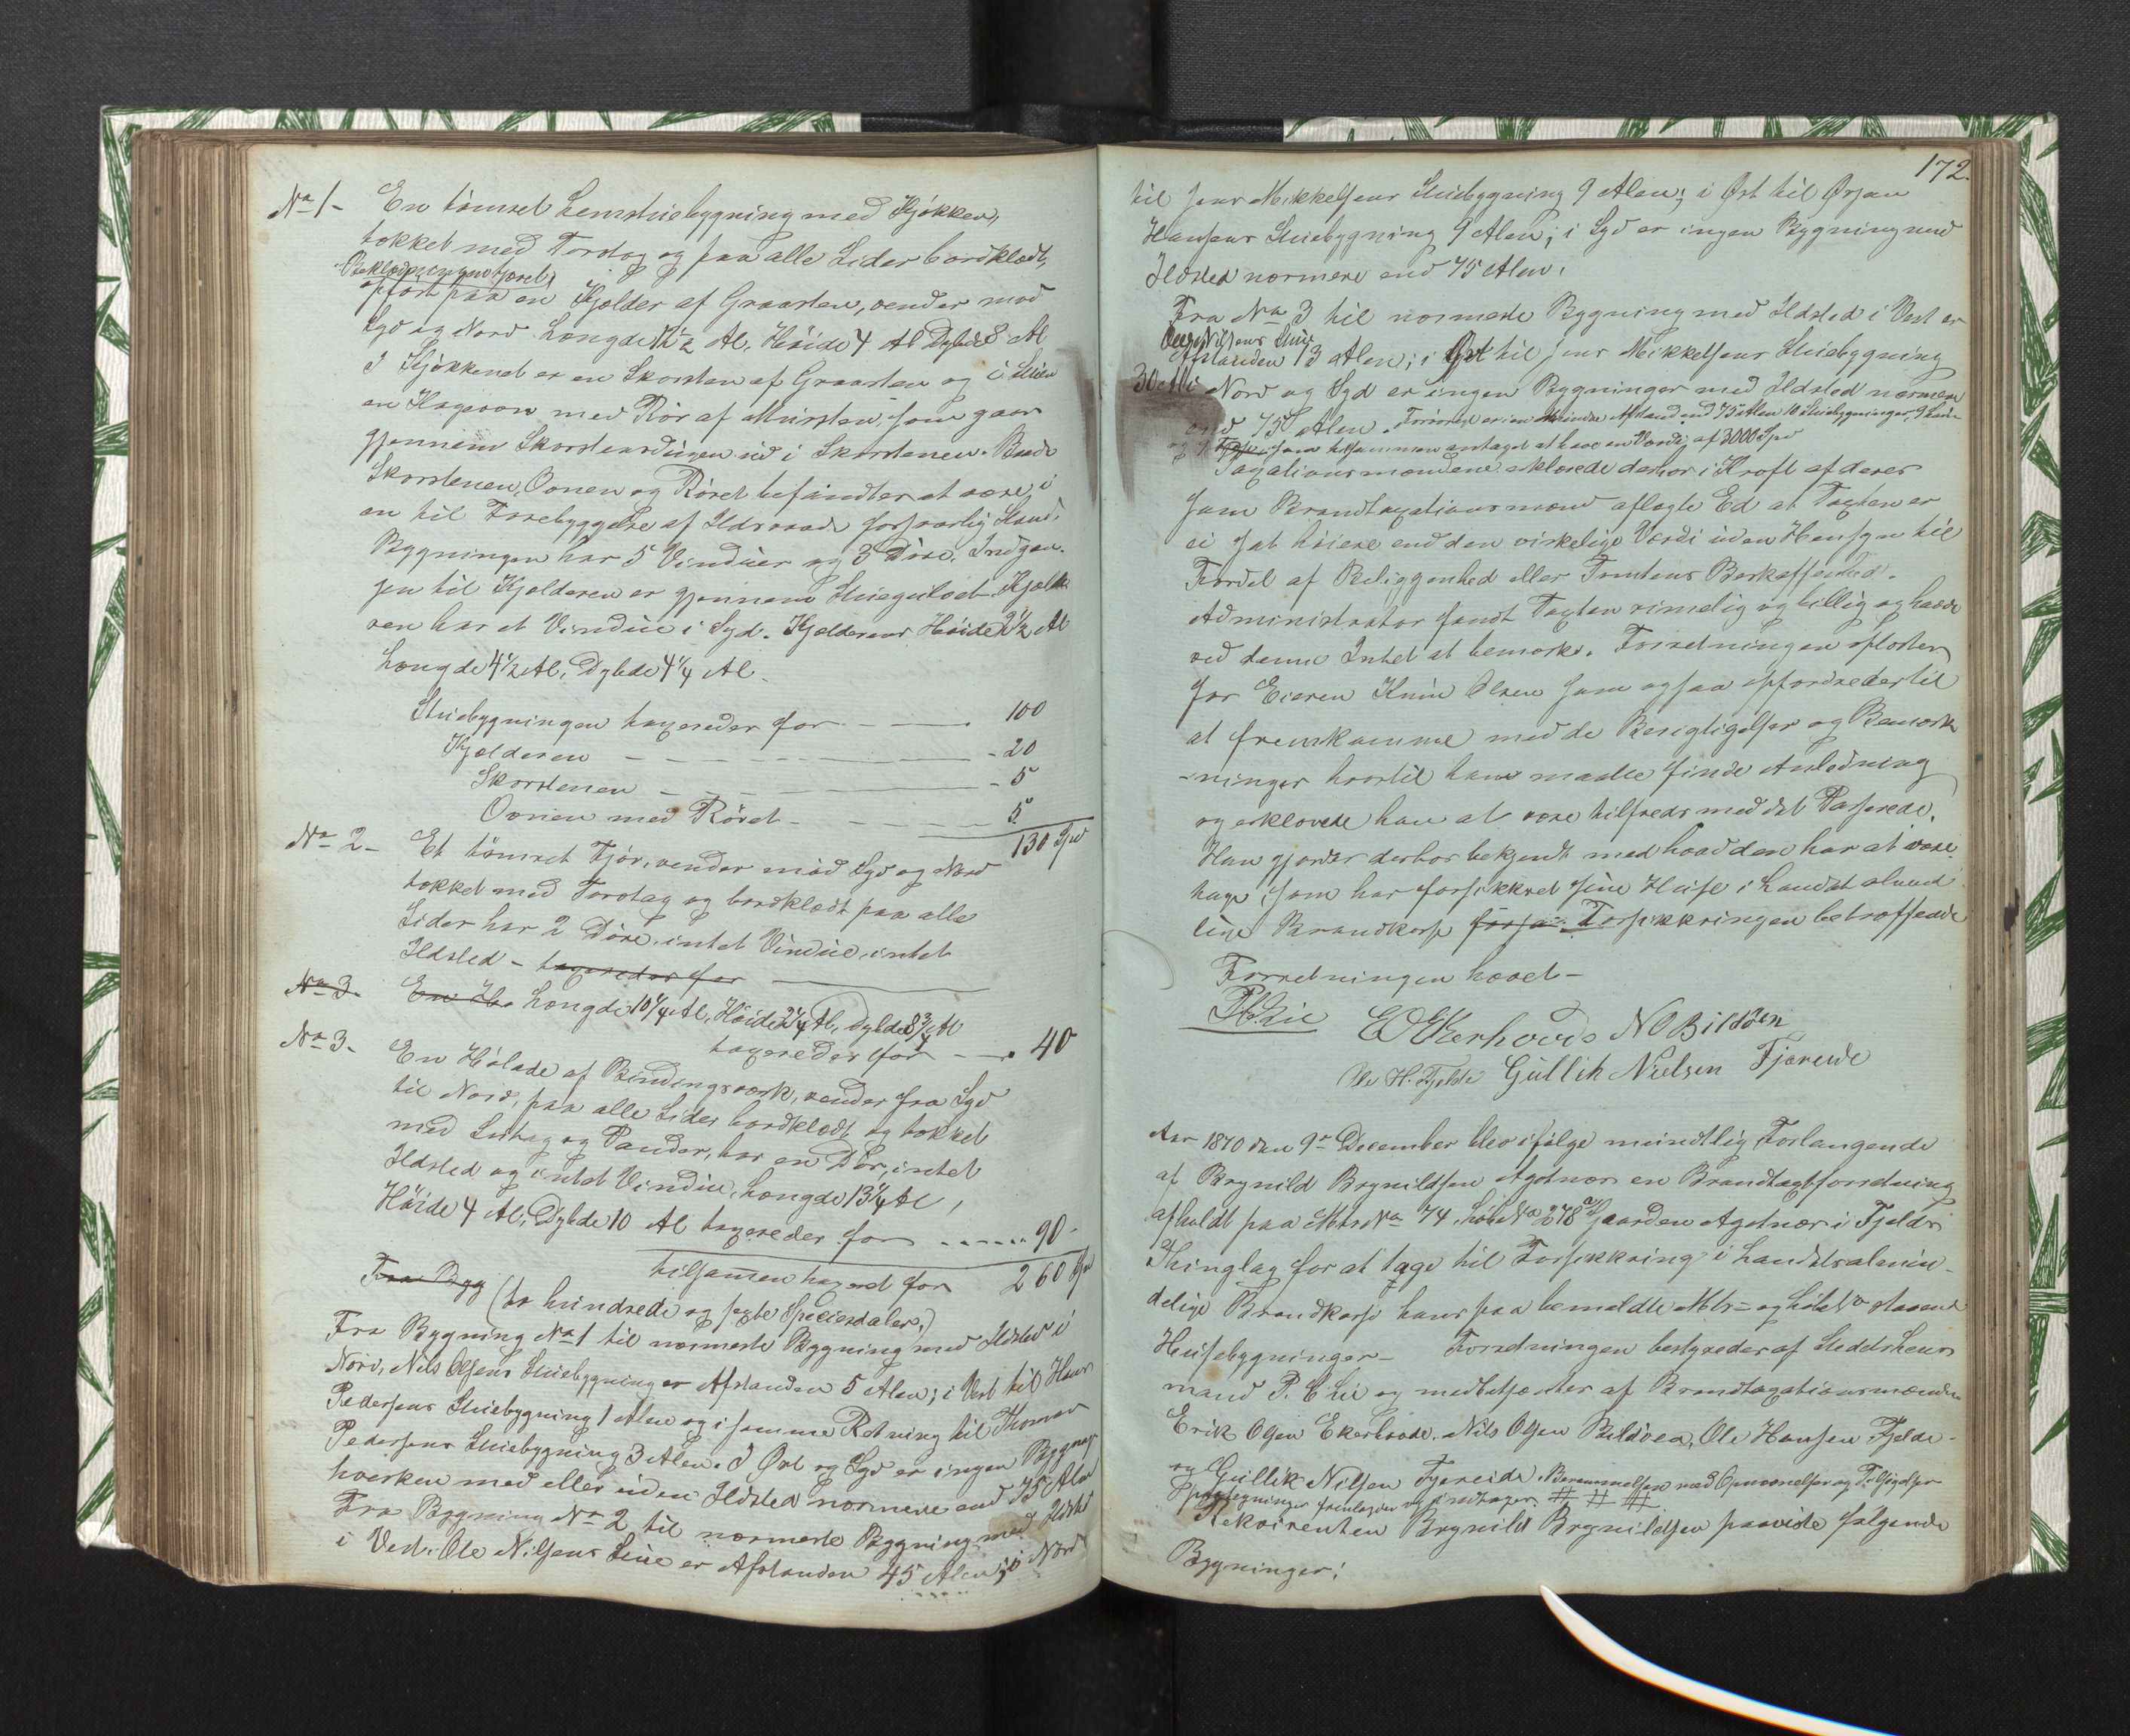 No 1- En tömret Lemstuebygning med Kjökken,
takket med Torvtag og paa alle Sider bordklædt,
Beklædningen tjæret,
opfört paa en Kjælder af Graasten, vender mod
Syd og Nord Længde 11 1/2 Al, Höide 4 Al Dybde 8 Al
I Kjökkenet er en Skorsten af Graasten og i Stuen
en Kageovn med Rör af Mursten, som gaar
gjennem Skorstensdigen ud i Skorstenen. Baade
Skorstenen, Ovnen og Röret befandtes at være i
en til Forebyggelse af Ildsvaade forsvarlig Stand.
Bygningen har 5 Vinduer og 3 Döre. Indgan-
gen til Kjælderen er gjennem Stuegulvet. Kjælde
ren har et Vindue i Syd. Kjælderens Höide 2 1/2 Al
Længde 4 1/2 Al, Dybde 4 1/4 Al.
Stuebygningen taxeredes for - 100
Kjælderen - 20
Skorstenen - 5
Ovnen med Röret - 5
130 Spd
No 2- Et tömret Fjös, vender mod Syd og Nord
takket med Torvtag og bordklædt paa alle
Sider har 2 Döre, intet Vindue, intet
Ildsted - taxeredes for
No 3. En Hö Længde 10 1/4 Al, Höide 3 1/4 Al, Dybde 8 3/4 Al
taxeredes for - 40
No 3- En Hölade af Bindingsværk, vender fra Syd
til Nord, paa alle Sider bordklædt og takket
med Sutag og Pander, har en Dör, intet
Ildsted og intet Vindue, Længde 13 1/4 Al,
Höide 4 Al, Dybde 10 Al taxeredes for ...... 90-
Fra Bygg tilsammen taxeret for 260 Spd
(to hundrede og sexti Speciesdaler.)
Fra Bygning No 1 til nærmeste Bygning med Ildsted i
Nord, Nils Olsens Stuebygning er Afstanden 5 Alen; i Vest til Hans
Pedersens Stuebygning 1 Alen og i samme Retning til Thomas
Pedersens Stuebygning 3 Alen. I Öst og Syd er ingen Bygning
hverken med eller uden Ildsted nærmere end 75 Alen
Fra Bygning No 2 til nærmeste Bygning med Ildsted
i Vest: Ole Nilsens Stue er Afstanden 45 Alen; i Nord
172.
til Jens Mikkelsens Stuebygning 9 Alen; i Öst til Örjan
Hansens Stuebygning 9 Alen; i Syd er ingen Bygning med
Ildsted nærmere end 75 Alen.
Fra No 3 til nærmeste Bygning med Ildsted i Vest er
Ole Nilsens Stue
Afstanden 13 Alen; i Öst til Jens Mikkelsens Stuebygning
30 Al. i Nord og Syd er ingen Bygninger med Ildsted nærmere
end 75 Alen. Forövrigt er i en mindre Afstand end 75 Alen 10 Stuebygninger, 9
og 9 som tilsammen antaget at have en Værdi af 3000 Spd
Taxationsmændene erklærede derhos i Kraft af deres
som Brandtaxationsmænd aflagte Ed at Taxten er
ei sat höiere end den virkelige Værdi uden Hensyn til
Fordel af Beliggenhed eller Tomtens Beskaffenhed.
Administrator fandt Taxten rimelig og billig og havde
ved denne Intet at bemærke. Forretningen oplæstes
for Eieren Knud Olsen som ogsaa opfordredes til
at fremkomme med de Besigtigelser og Bemærk
-ninger hvortil han maatte finde Anledning
og erklærede han at være tilfreds med det Passerede.
Han gjordes derhos bekjendt med hvad den har at iagt-
tage, som har forsikkret sine Huse i Landets almind-
lige Brandkasse Forsikkringen betræffende
Forretningen hævet-
P. Lie E O Ekerhovd N O Bildöen
Ole H. Fjelde Gullik Nielsen Fjæreide
Aar 1870 den 9de December blev ifölge mundtlig Forlangende
af Brynild Brynildsen Agotnes en Brandtaxtforretning
afholdt paa Mtr No 74, Löbe No 278 a Gaarden Agotnes i Fjelds
Thinglag for at tage til Forsikkring i Landets almin-
delige Brandkasse hans paa bemeldte Mtr- og Löbe No staaende
Husebygninger- Forretningen bestyredes af Steddslens-
mand P. C Lie og medbetjentes af Brandtaxationsmændene
Erik Olsen Ekerhovde, Nils Olsen Bildöen, Ole Hansen Fjelde-
og Gullik Nilsen Fjæreide. Berammelsen med Opnævnelse og Tilsigelses
paategninger fremlagdes og indtages. # # #
Rekvirenten Brynild Brynildsen paaviste fölgende
Bygninger: